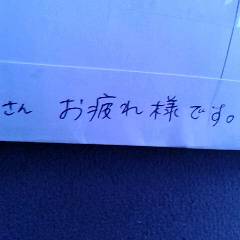 さん お疲れ様です。